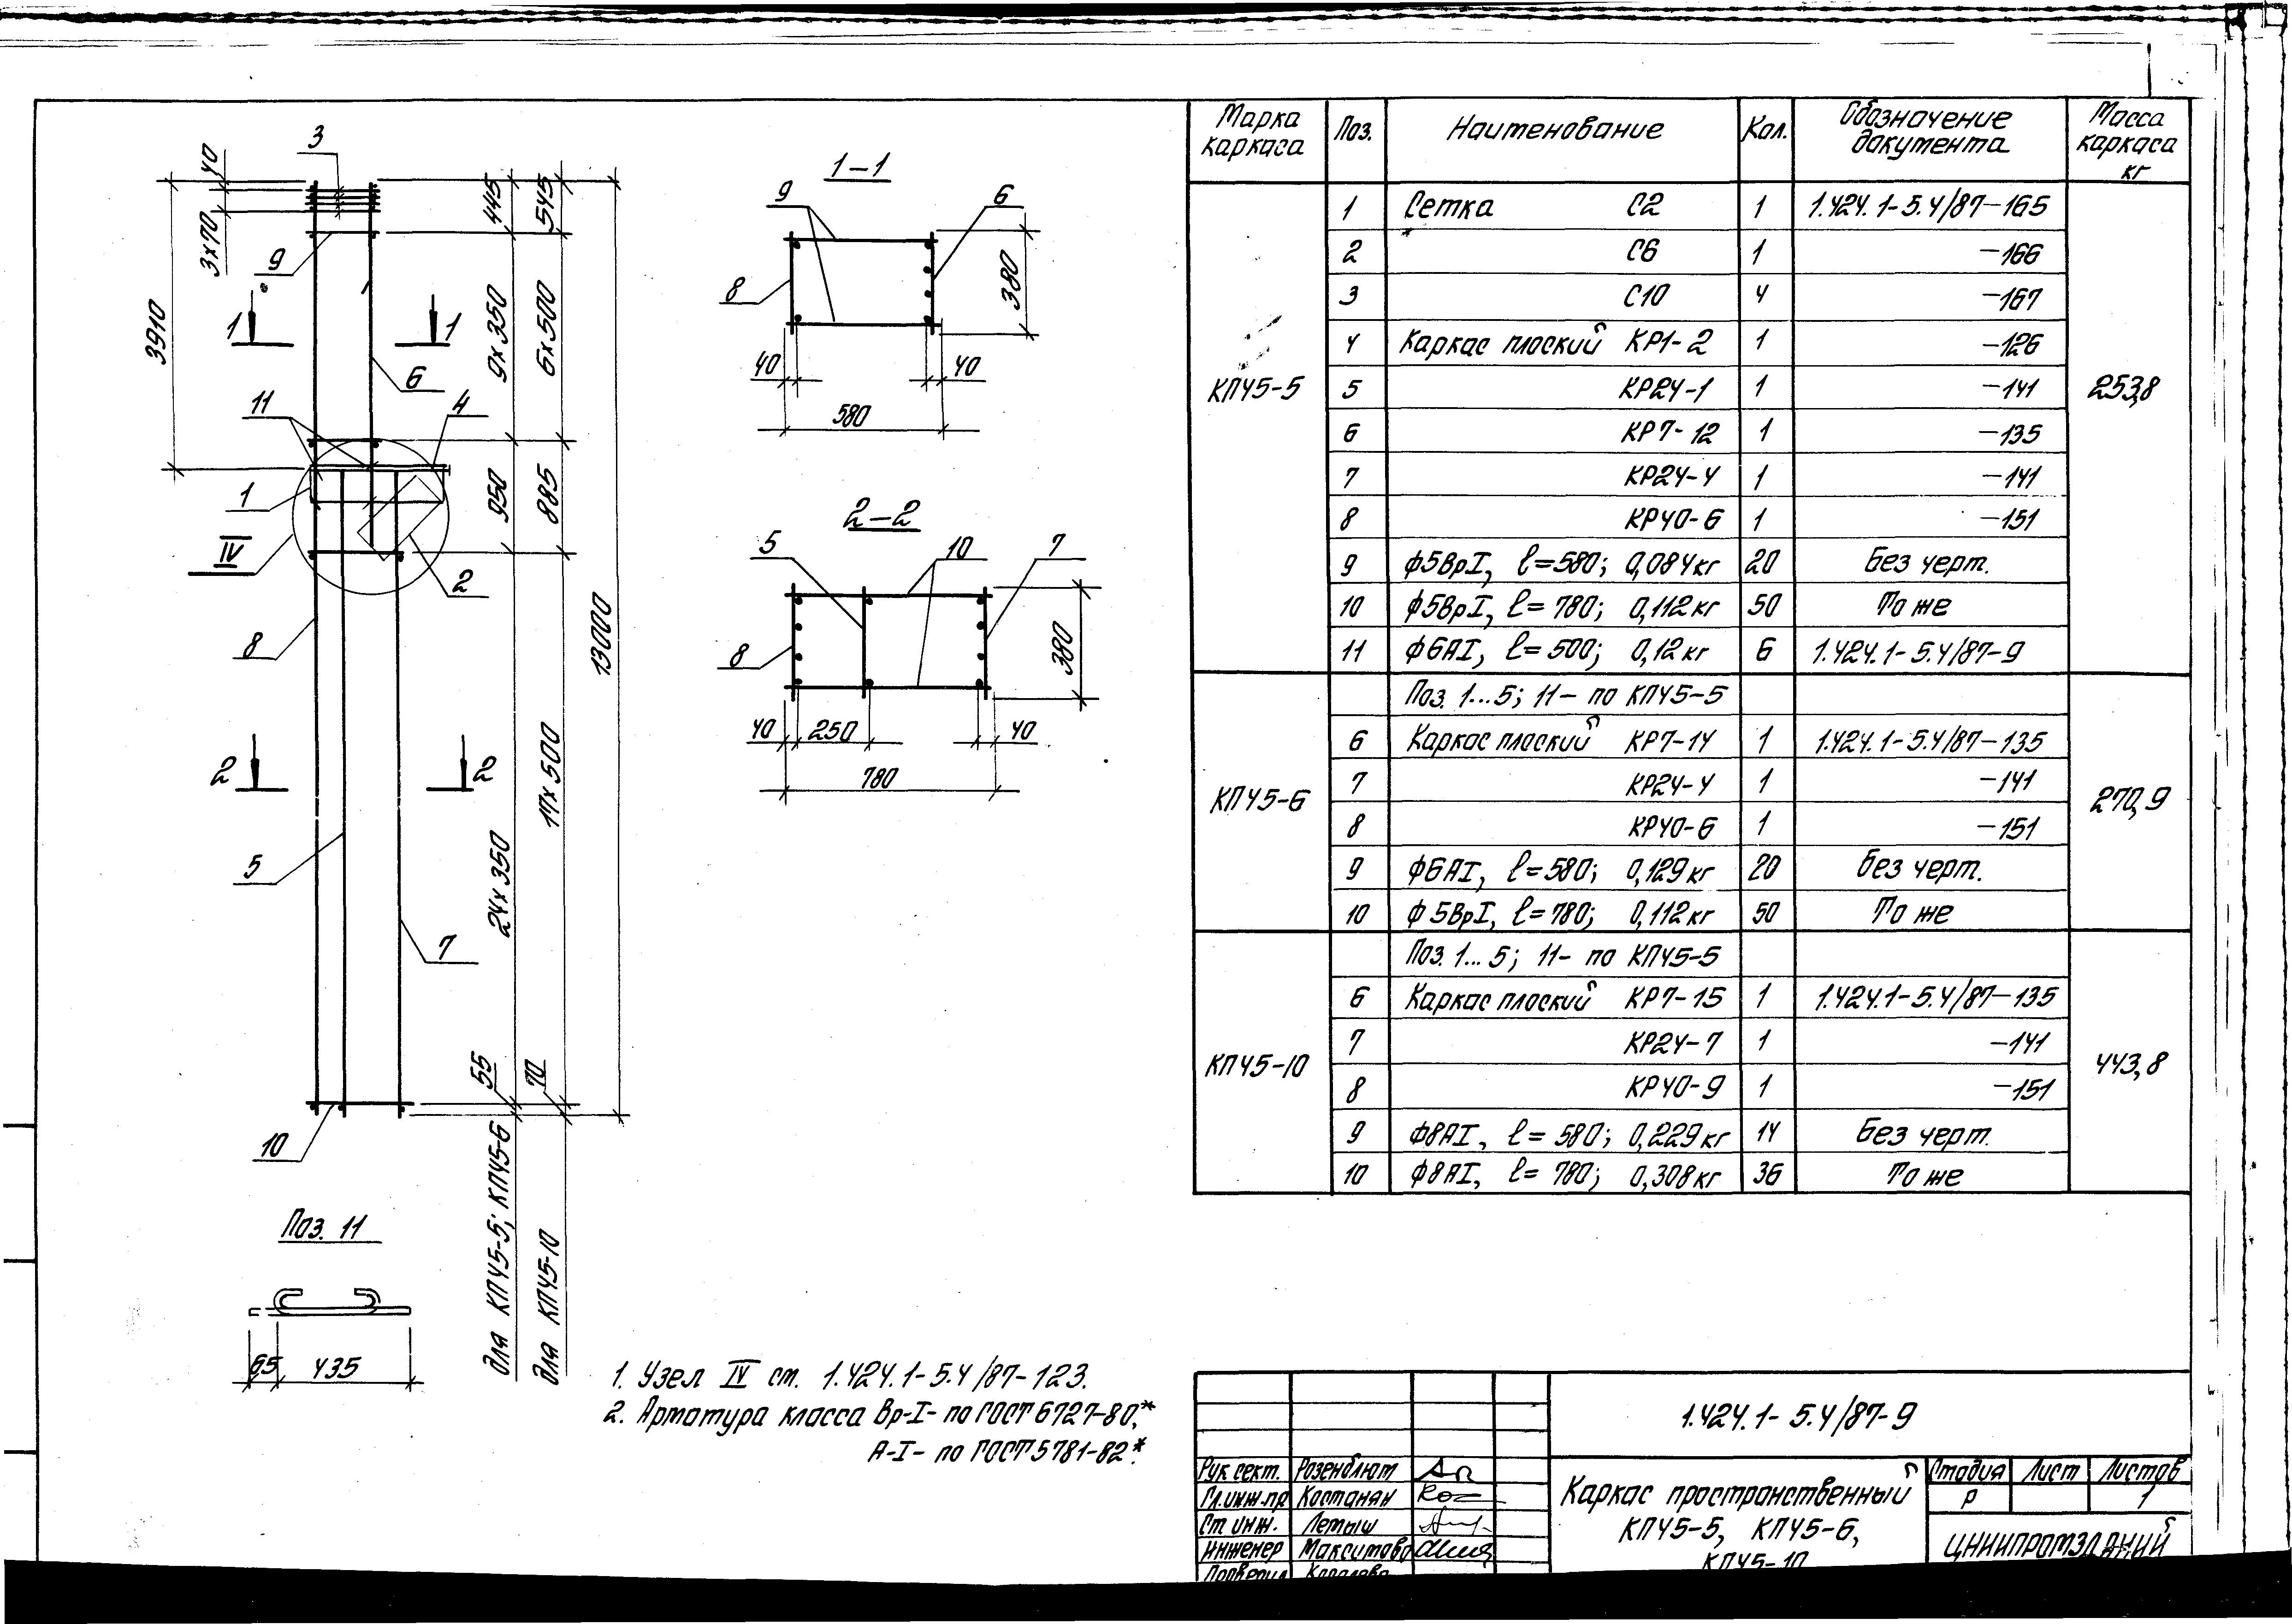 3
40
3х70
9
3910
1 1
6
11
4
1
IV
2
8
2 2
5
7
10
445
9х350
950
24х350
55
для КП45-5; КП45-6
545
6х500
885
17х500
70
для КП45-10
13000
1-1
9
6
8
380
40
40
580
2-2
5
10
7
8
380
40
250
40
780
Поз. 11
65
435
1. Узел IV см. 1.424.1-5.4/87-123.
2. Арматура класса Вр-I- по ГОСТ 6727-80,*
А-I- по ГОСТ 5781-82*.
Марка каркаса Поз. Наименование Кол. Обозначение документа Масса каркаса кг
КП45-5 253,8
1 Сетка С2 1 1.424.1-5.4/87-165
2 С6 1 -166
3 С10 4 -167
4 Каркас плоский КР1-2 1 -126
5 КР24-1 1 -141
6 КР7-12 1 -135
7 КР24-4 1 -141
8 КР40-6 1 -151
9 ф5ВрI, ℓ=580; 0,084кг 20 Без черт.
10 ф5ВрI, ℓ=780; 0,112кг 50 То же
11 ф6АI, ℓ=500; 0,12кг 6 1.424.1-5.4/87-9
КП45-6 270,9
Поз. 1...5; 11- по КП45-5
6 Каркас плоский КР7-14 1 1.424.1-5.4/87-135
7 КР24-4 1 -141
8 КР40-6 1 -151
9 ф6АI, ℓ=580; 0,129кг 20 Без черт.
10 ф5ВрI, ℓ=780; 0,112кг 50 То же
КП45-10 443,8
Поз. 1...5; 11- по КП45-5
6 Каркас плоский КР7-15 1 1.424.1-5.4/87-135
7 КР24-7 1 -141
8 КР40-9 1 -151
9 ф8АI, ℓ=580; 0,229кг 14 Без черт.
10 ф8АI, ℓ=780; 0,308кг 36 То же
1.424.1-5.4/87-9
Рук. сект. Розенблюм
Гл.инж.пр Костанян
Ст. инж. Летыш
Инженер Максимова
Проверил
Каркас пространственный
КП45-5, КП45-6,
КП45-10
Стадия Лист Листов
Р 1
ЦНИИПРОМЗДАНИЙ